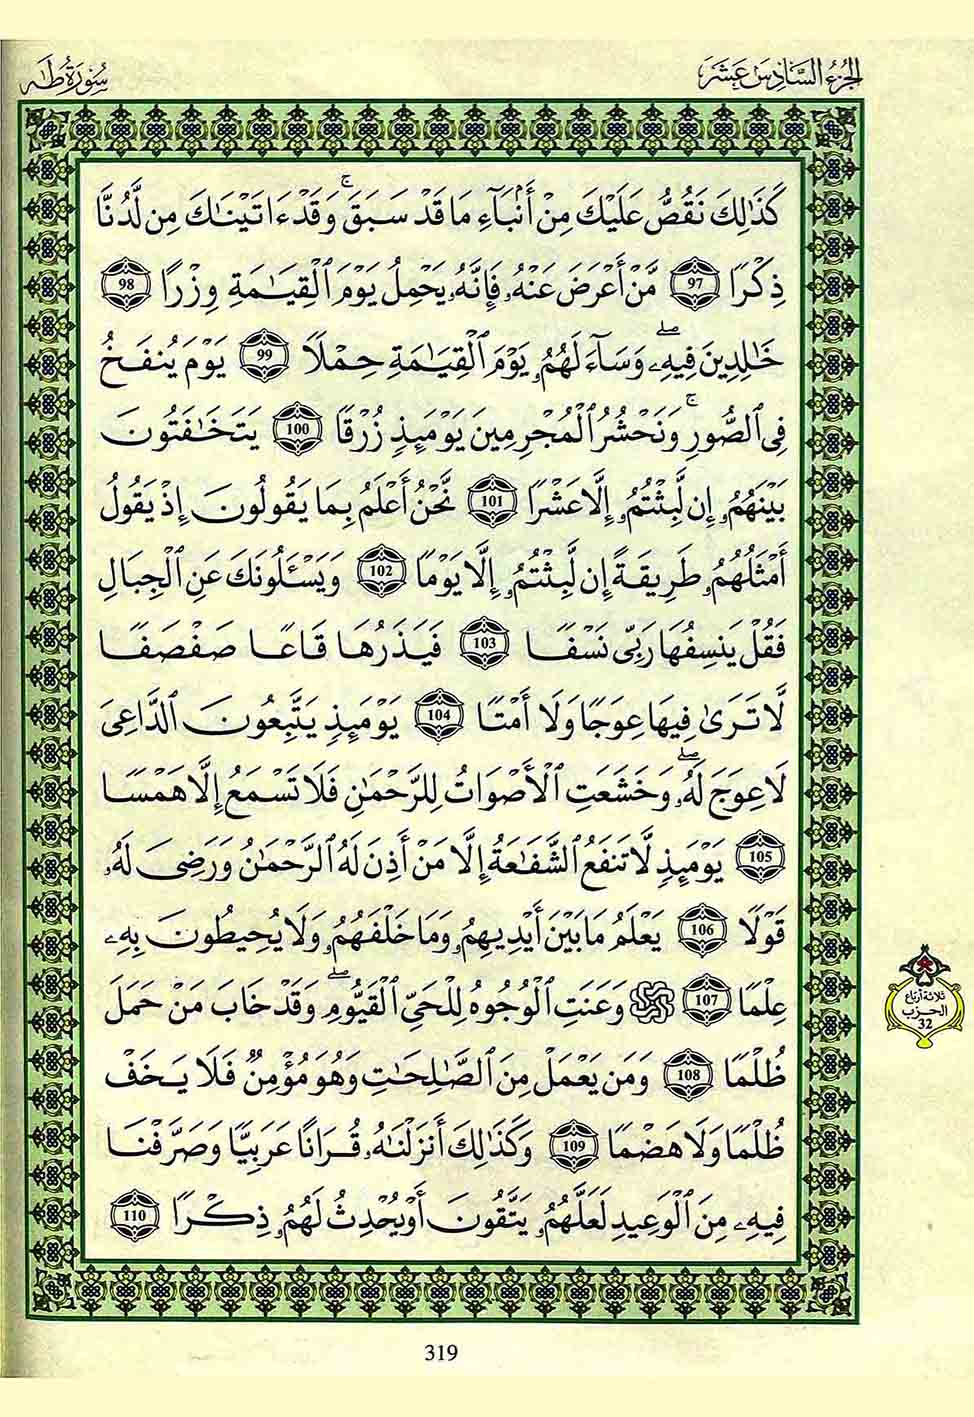 الجزء السادس عشر
سورة طه
كَذَٰلِكَ نَقُصُّ عَلَيْكَ مِنْ أَنۢبَآءِ مَا قَدْ سَبَقَۚ وَقَدْ ءَاتَيْنَٰكَ مِن لَّدُنَّا
ذِكْرًا 97 مَّنْ أَعْرَضَ عَنْهُۥ فَإِنَّهُۥ يَحْمِلُ يَوْمَ ٱلْقِيَٰمَةِ وِزْرًا 98
خَٰلِدِينَ فِيهِۦۖ وَسَآءَ لَهُمُۥ يَوْمَ ٱلْقِيَٰمَةِ حِمْلًا 99 يَوْمَ يُنفَخُ
فِى ٱلصُّورِۚ وَنَحْشُرُ ٱلْمُجْرِمِينَ يَوْمَئِذٍ زُرْقًا 100 يَتَخَٰفَتُونَ
بَيْنَهُمُۥ إِن لَّبِثْتُمُۥ إِلَّا عَشْرًا 101 نَّحْنُ أَعْلَمُ بِمَا يَقُولُونَ إِذْ يَقُولُ
أَمْثَلُهُمُۥ طَرِيقَةً إِن لَّبِثْتُمُۥ إِلَّا يَوْمًا 102 وَيَسْـَٔلُونَكَ عَنِ ٱلْجِبَالِ
فَقُلْ يَنسِفُهَا رَبِّى نَسْفًا 103 فَيَذَرُهَا قَاعًا صَفْصَفًا
لَّا تَرَىٰ فِيهَا عِوَجًا وَلَا أَمْتًا 104 يَوْمَئِذٍ يَتَّبِعُونَ ٱلدَّاعِىَ
لَا عِوَجَ لَهُۥۖ وَخَشَعَتِ ٱلْأَصْوَاتُ لِلرَّحْمَٰنِ فَلَا تَسْمَعُ إِلَّا هَمْسًا
105 يَوْمَئِذٍ لَّا تَنفَعُ ٱلشَّفَٰعَةُ إِلَّا مَنْ أَذِنَ لَهُ ٱلرَّحْمَٰنُ وَرَضِىَ لَهُۥ
قَوْلًا 106 يَعْلَمُ مَا بَيْنَ أَيْدِيهِمُۥ وَمَا خَلْفَهُمُۥ وَلَا يُحِيطُونَ بِهِۦ
عِلْمًا 107 وَعَنَتِ ٱلْوُجُوهُ لِلْحَىِّ ٱلْقَيُّومِۖ وَقَدْ خَابَ مَنْ حَمَلَ
ظُلْمًا 108 وَمَن يَعْمَلْ مِنَ ٱلصَّٰلِحَٰتِ وَهُوَ مُؤْمِنٌ فَلَا يَخَفْ
ظُلْمًا وَلَا هَضْمًا 109 وَكَذَٰلِكَ أَنزَلْنَٰهُۥ قُرَانًا عَرَبِيًّا وَصَرَّفْنَا
فِيهِۦ مِنَ ٱلْوَعِيدِ لَعَلَّهُمُۥ يَتَّقُونَ أَوْ يُحْدِثُ لَهُمُۥ ذِكْرًا 110
ثلاثة أرباع
الحزب
32
319